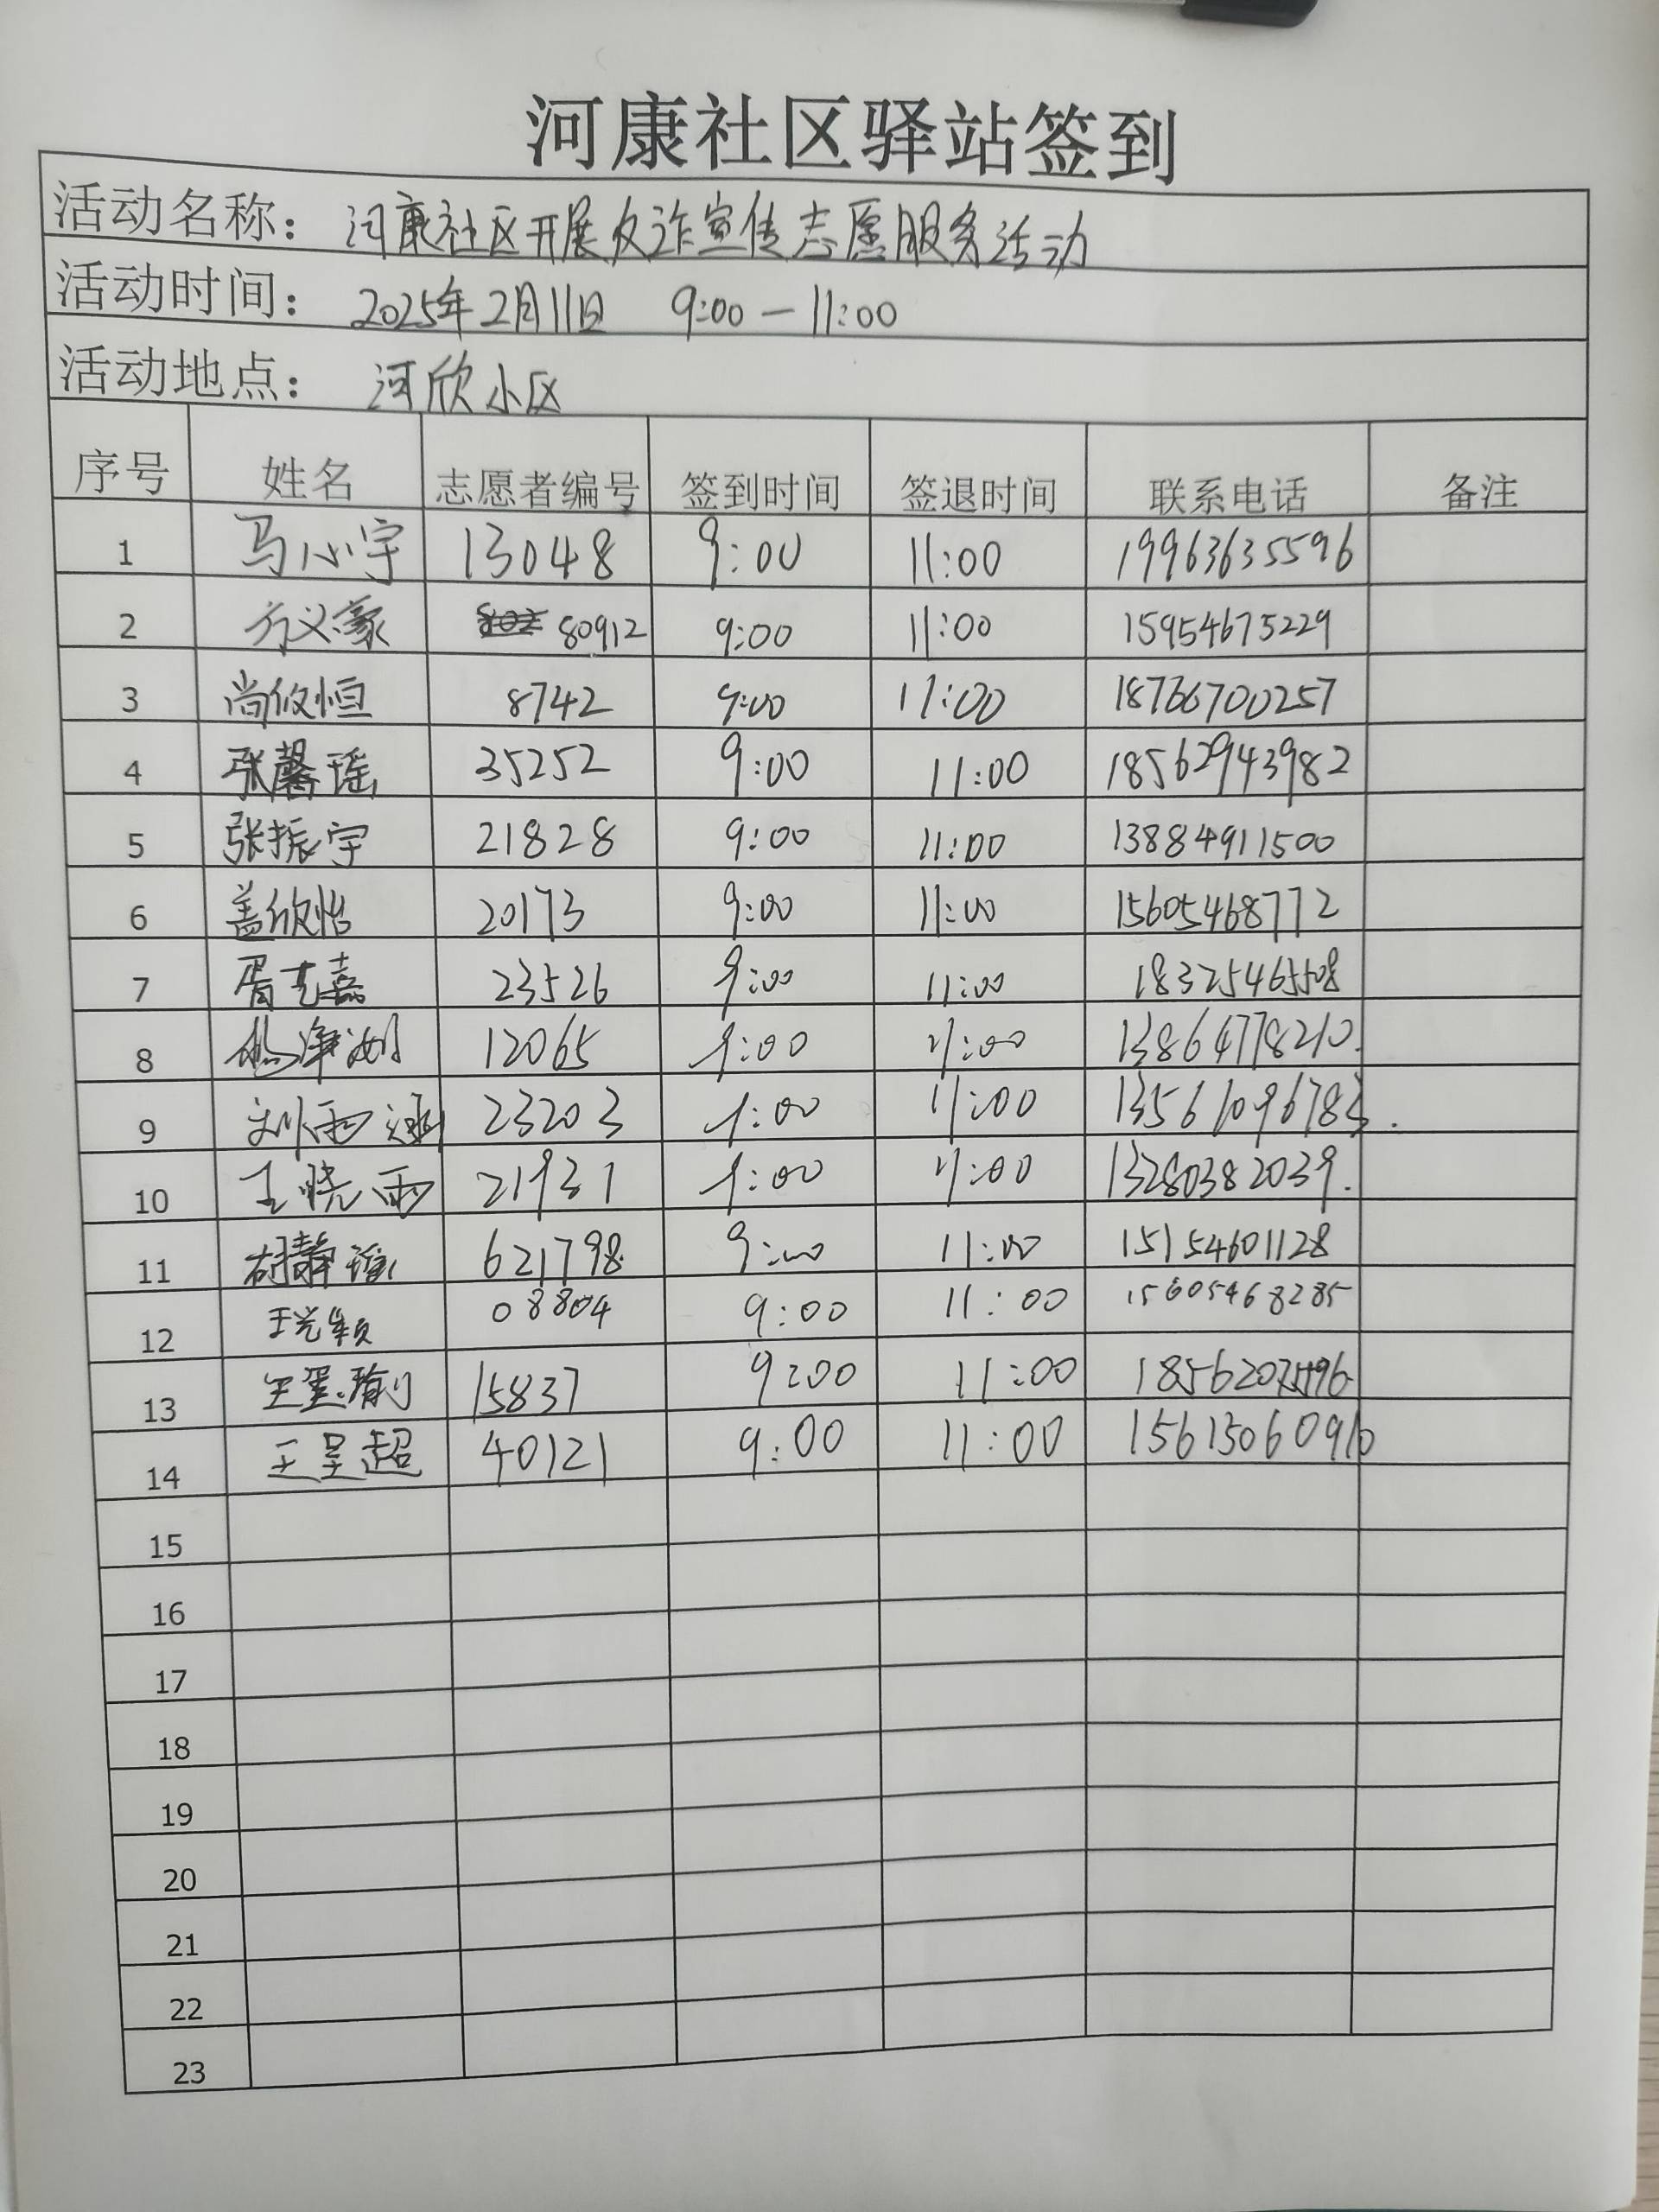 河康社区驿站签到
活动名称： 河康社区开展反诈宣传志愿服务活动
活动时间： 2025年2月11日 9:00—11:00
活动地点： 河欣小区
序号 姓名 志愿者编号 签到时间 签退时间 联系电话 备注
1 马小宇 13048 9:00 11:00 19963635596
2 方义豪 80912 9:00 11:00 15954675229
3 尚攸恒 8742 9:00 11:00 18766700257
4 张馨瑶 35252 9:00 11:00 18562943982
5 张振宇 21828 9:00 11:00 13884911500
6 盖欣怡 20173 9:00 11:00 15605468772
7 胥艺嘉 23526 9:00 11:00 18325465508
8 12065 9:00 11:00 13864778210.
9 刘雨涵 23203 9:00 11:00
10 王晓雨 21931 9:00 11:00 13280382039.
11 胡静瑶 621798 9:00 11:00 15154601128
12 08804 9:00 11:00 15605468285
13 15837 9:00 11:00
14 王呈超 40121 9:00 11:00
15
16
17
18
19
20
21
22
23